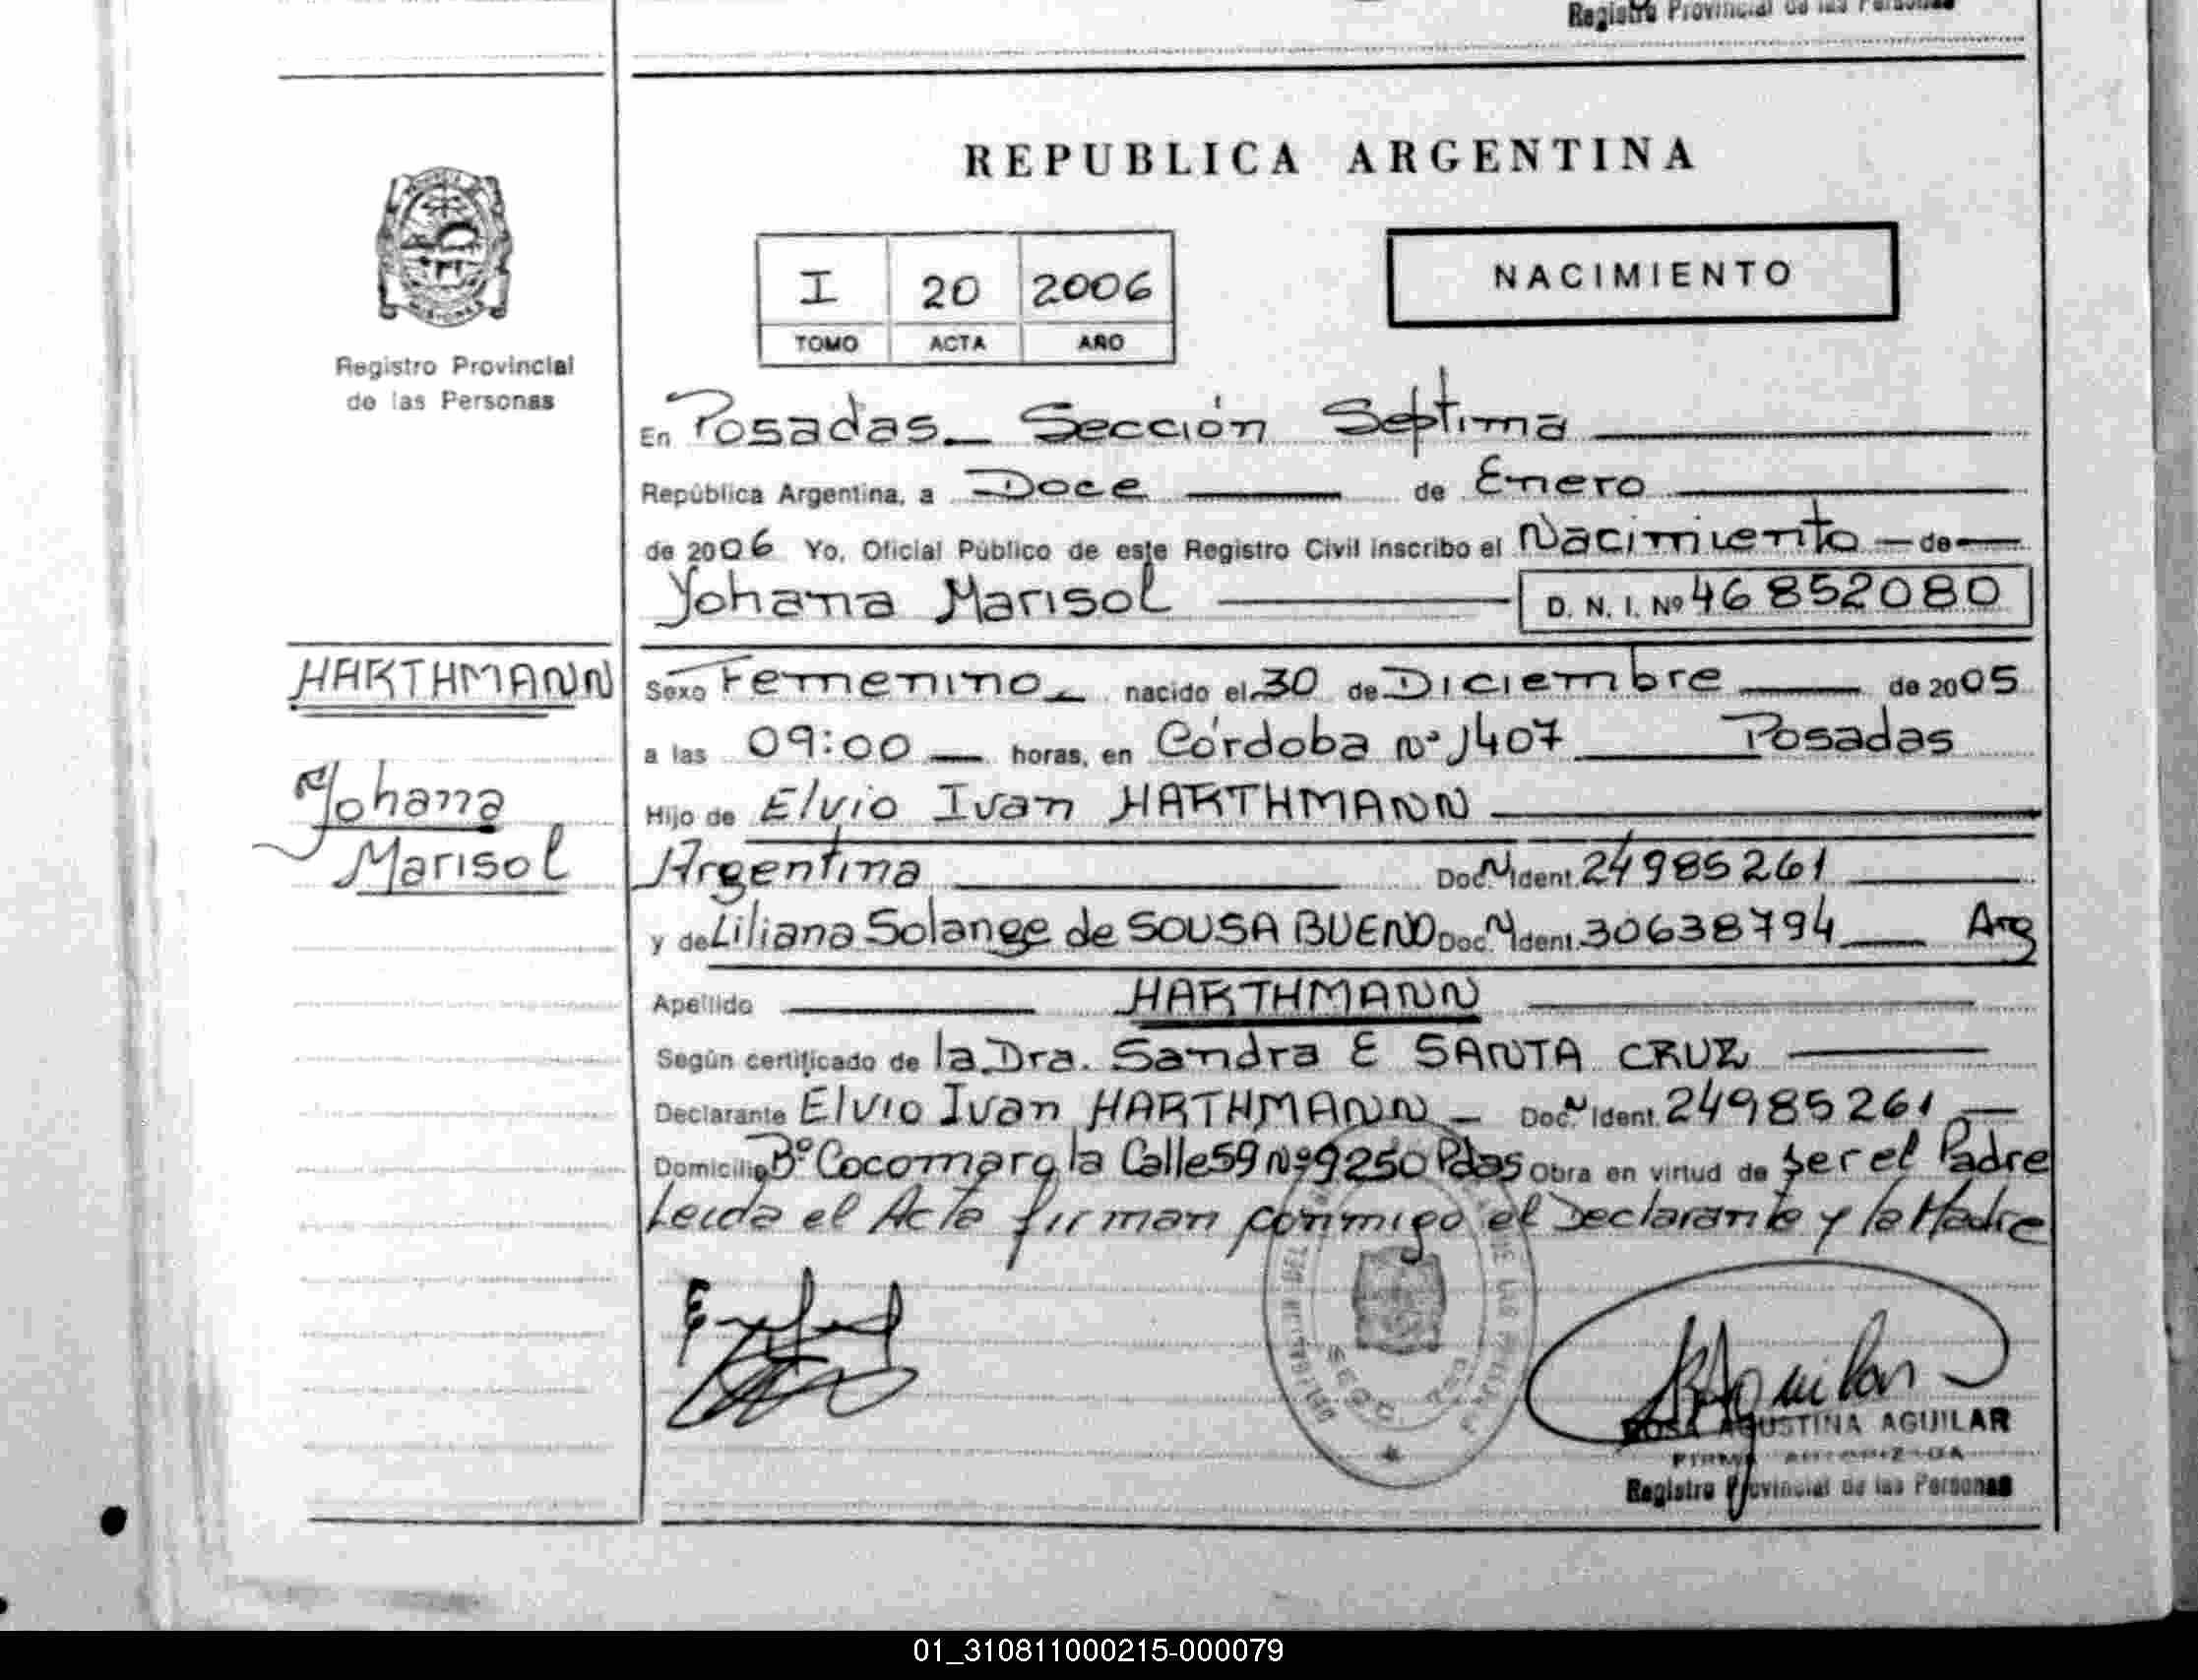 Registro Provincial de las Personas
REPUBLICA ARGENTINA
I 20 2006
TOMO ACTA AÑO
NACIMIENTO
Registro Provincial
de las Personas
En Posadas. Sección Septima
República Argentina, a Doce de Enero
de 2006 Yo, Oficial Público de este Registro Civil inscribo el Nacimiento de
Yohana Marisol D. N. I. Nº 46852080
HARTHMANN
Yohana
Marisol
Sexo Femenino nacido el 30 de Diciembre de 2005
a las 09:00 horas, en Córdoba Nº 1407 Posadas
Hijo de Elvio Ivan HARTHMANN
Argentina Doc. N Ident. 24985261
y de Liliana Solange de SOUSA BUENO Doc. N Ident. 30638794 Arg
Apellido HARTHMANN
Según certificado de la Dra. Sandra E SANTA CRUZ
Declarante Elvio Ivan HARTHMANN Doc. N Ident. 24985261
Domicilio Bº Cocomarola Calle 59 Nº 9250 Pdas Obra en virtud de ser el Padre
Leida el Acta firman conmigo el Declarante y la Madre
ROSA AGUSTINA AGUILAR
FIRMA AUTORIZADA
Registro Provincial de las Personas
01_310811000215-000079